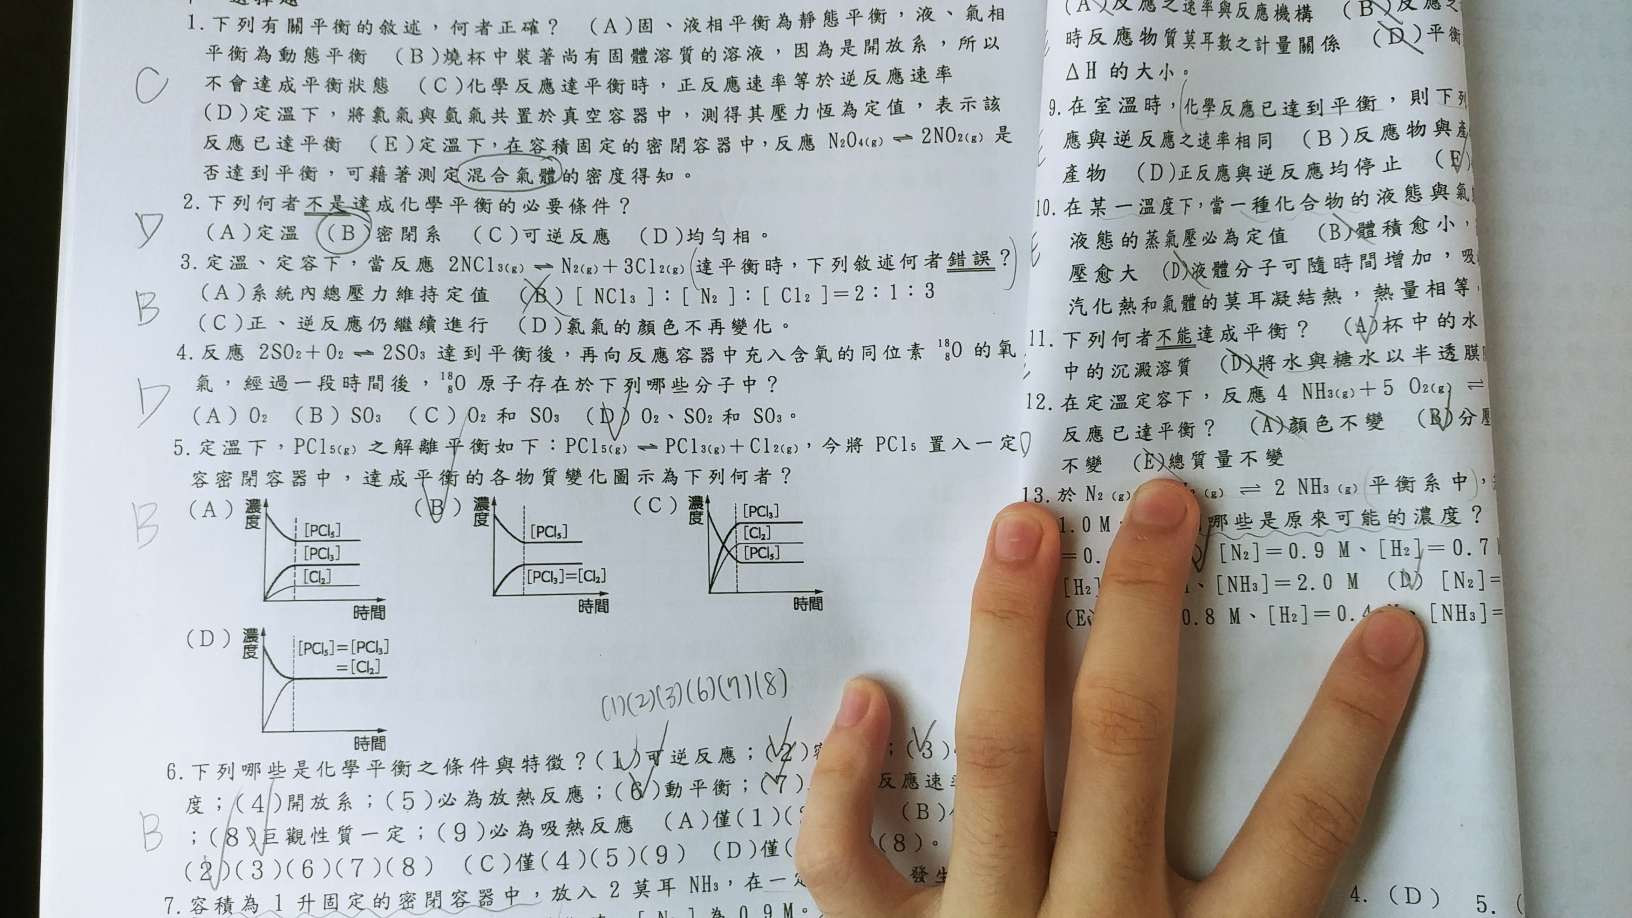 1.下列有關平衡的敘述，何者正確？ (A)固、液相平衡為靜態平衡，液、氣相
平衡為動態平衡 (B)燒杯中裝著尚有固體溶質的溶液，因為是開放系，所以
不會達成平衡狀態 (C)化學反應達平衡時，正反應速率等於逆反應速率
(D)定溫下，將氯氣與氫氣共置於真空容器中，測得其壓力恆為定值，表示該
反應已達平衡 (E)定溫下，在容積固定的密閉容器中，反應 N₂O₄(g) ⇌ 2NO₂(g) 是
否達到平衡，可藉著測定混合氣體的密度得知。
C
2.下列何者不是達成化學平衡的必要條件？
(A)定溫 (B)密閉系 (C)可逆反應 (D)均勻相。
D
3.定溫、定容下，當反應 2NCl₃(g) ⇌ N₂(g)+3Cl₂(g) 達平衡時，下列敘述何者錯誤？
(A)系統內總壓力維持定值 (B)[ NCl₃ ]：[ N₂ ]：[ Cl₂ ]=2：1：3
(C)正、逆反應仍繼續進行 (D)氯氣的顏色不再變化。
B
4.反應 2SO₂+O₂ ⇌ 2SO₃ 達到平衡後，再向反應容器中充入含氧的同位素 ¹⁸₈O 的氧
氣，經過一段時間後，¹⁸₈O 原子存在於下列哪些分子中？
(A) O₂ (B) SO₃ (C) O₂ 和 SO₃ (D) O₂、SO₂ 和 SO₃。
D
5.定溫下，PCl₅(g) 之解離平衡如下：PCl₅(g) ⇌ PCl₃(g)+Cl₂(g)，今將 PCl₅ 置入一定
容密閉容器中，達成平衡的各物質變化圖示為下列何者？
B
(A) 濃度 [PCl₅] [PCl₃] [Cl₂] 時間
(B) 濃度 [PCl₅] [PCl₃]=[Cl₂] 時間
(C) 濃度 [PCl₃] [Cl₂] [PCl₅] 時間
(D) 濃度 [PCl₅]=[PCl₃]
=[Cl₂] 時間
(1)(2)(3)(6)(7)(8)
6.下列哪些是化學平衡之條件與特徵？(1)可逆反應；(2) ；(3)
度；(4)開放系；(5)必為放熱反應；(6)動平衡；(7) 反應速
；(8)巨觀性質一定；(9)必為吸熱反應 (A)僅(1) (B)
(2)(3)(6)(7)(8) (C)僅(4)(5)(9) (D)僅( (8)。
B
7.容積為 1 升固定的密閉容器中，放入 2 莫耳 NH₃，在一定 發生
[ N₂ ] 為 0.9M。
(A)反應之速率與反應機構 (B)反應之
時反應物質莫耳數之計量關係 (D)平衡
ΔH 的大小。
9.在室溫時，化學反應已達到平衡，則下列
應與逆反應之速率相同 (B)反應物與產
產物 (D)正反應與逆反應均停止 (E)
10.在某一溫度下，當一種化合物的液態與氣
液態的蒸氣壓必為定值 (B)體積愈小，
壓愈大 (D)液體分子可隨時間增加，吸
汽化熱和氣體的莫耳凝結熱，熱量相等
11.下列何者不能達成平衡？ (A)杯中的水
中的沉澱溶質 (D)將水與糖水以半透膜
12.在定溫定容下，反應 4 NH₃(g)+5 O₂(g) ⇌
反應已達平衡？ (A)顏色不變 (B)分壓
不變 (E)總質量不變
13.於 N₂ (g) (g) ⇌ 2 NH₃ (g) 平衡系中，
1.0 M 哪些是原來可能的濃度？
=0. [N₂]=0.9 M、[H₂]=0.7
[H₂] 、[NH₃]=2.0 M (D) [N₂]=
(E) 0.8 M、[H₂]=0.4 [NH₃]=
4. (D) 5. (